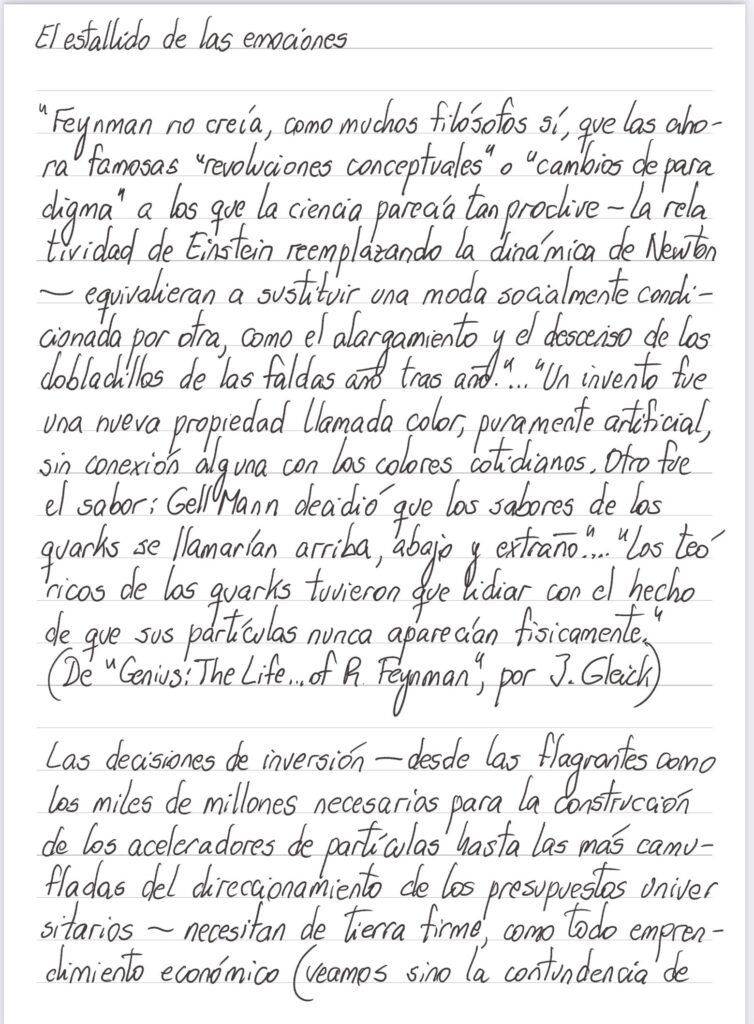 El estallido de las emociones
"Feynman no creía, como muchos filósofos sí, que las aho-
ra famosas "revoluciones conceptuales" o "cambios de para
digma" a los que la ciencia parecía tan proclive – la rela
tividad de Einstein reemplazando la dinámica de Newton
– equivalieran a sustituir una moda socialmente condi-
cionada por otra, como el alargamiento y el descenso de los
dobladillos de las faldas año tras año."... "Un invento fue
una nueva propiedad llamada color, puramente artificial,
sin conexión alguna con los colores cotidianos. Otro fue
el sabor: Gell Mann decidió que los sabores de los
quarks se llamarían arriba, abajo y extraño"... "Los teó
ricos de los quarks tuvieron que lidiar con el hecho
de que sus partículas nunca aparecían fisicamente."
(De "Genius: The Life... of R. Feynman", por J. Gleick)
Las decisiones de inversión – desde las flagrantes como
los miles de millones necesarios para la construcción
de los aceleradores de partículas hasta las más camu-
fladas del direccionamiento de los presupuestos univer
sitarios – necesitan de tierra firme, como todo empren-
dimiento económico (veamos sino la contundencia de